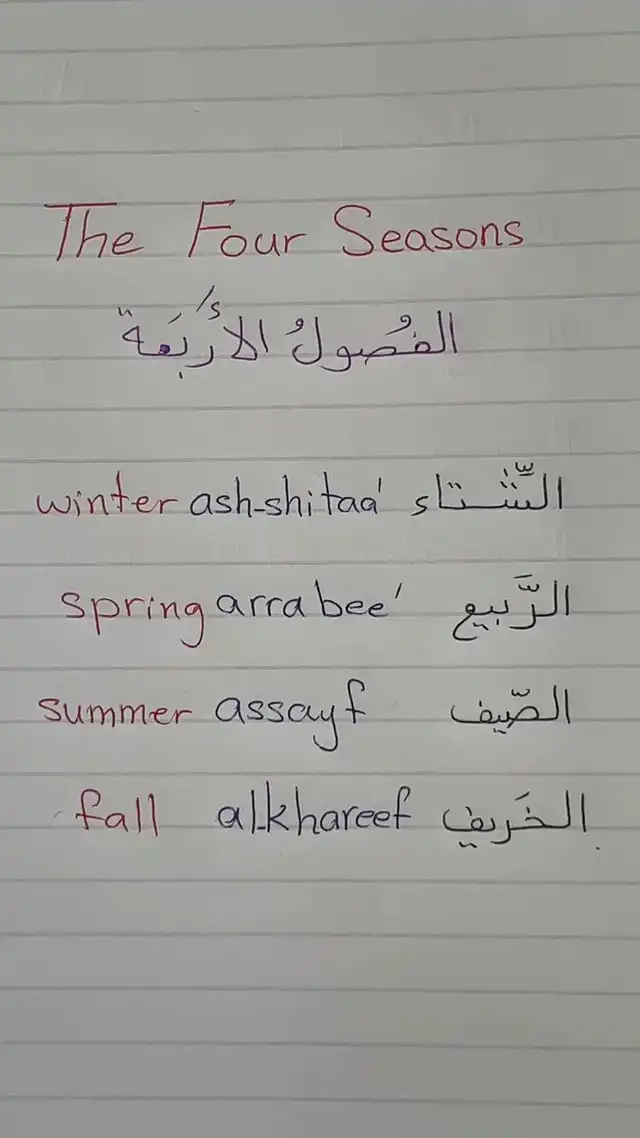 The Four Seasons
الفُصُولُ الأَرُبَعَة
winter ash-shitaa' الشِّتاء
spring arrabee' الرَّبيع
summer assayf الصّيف
fall al-khareef الخَريف